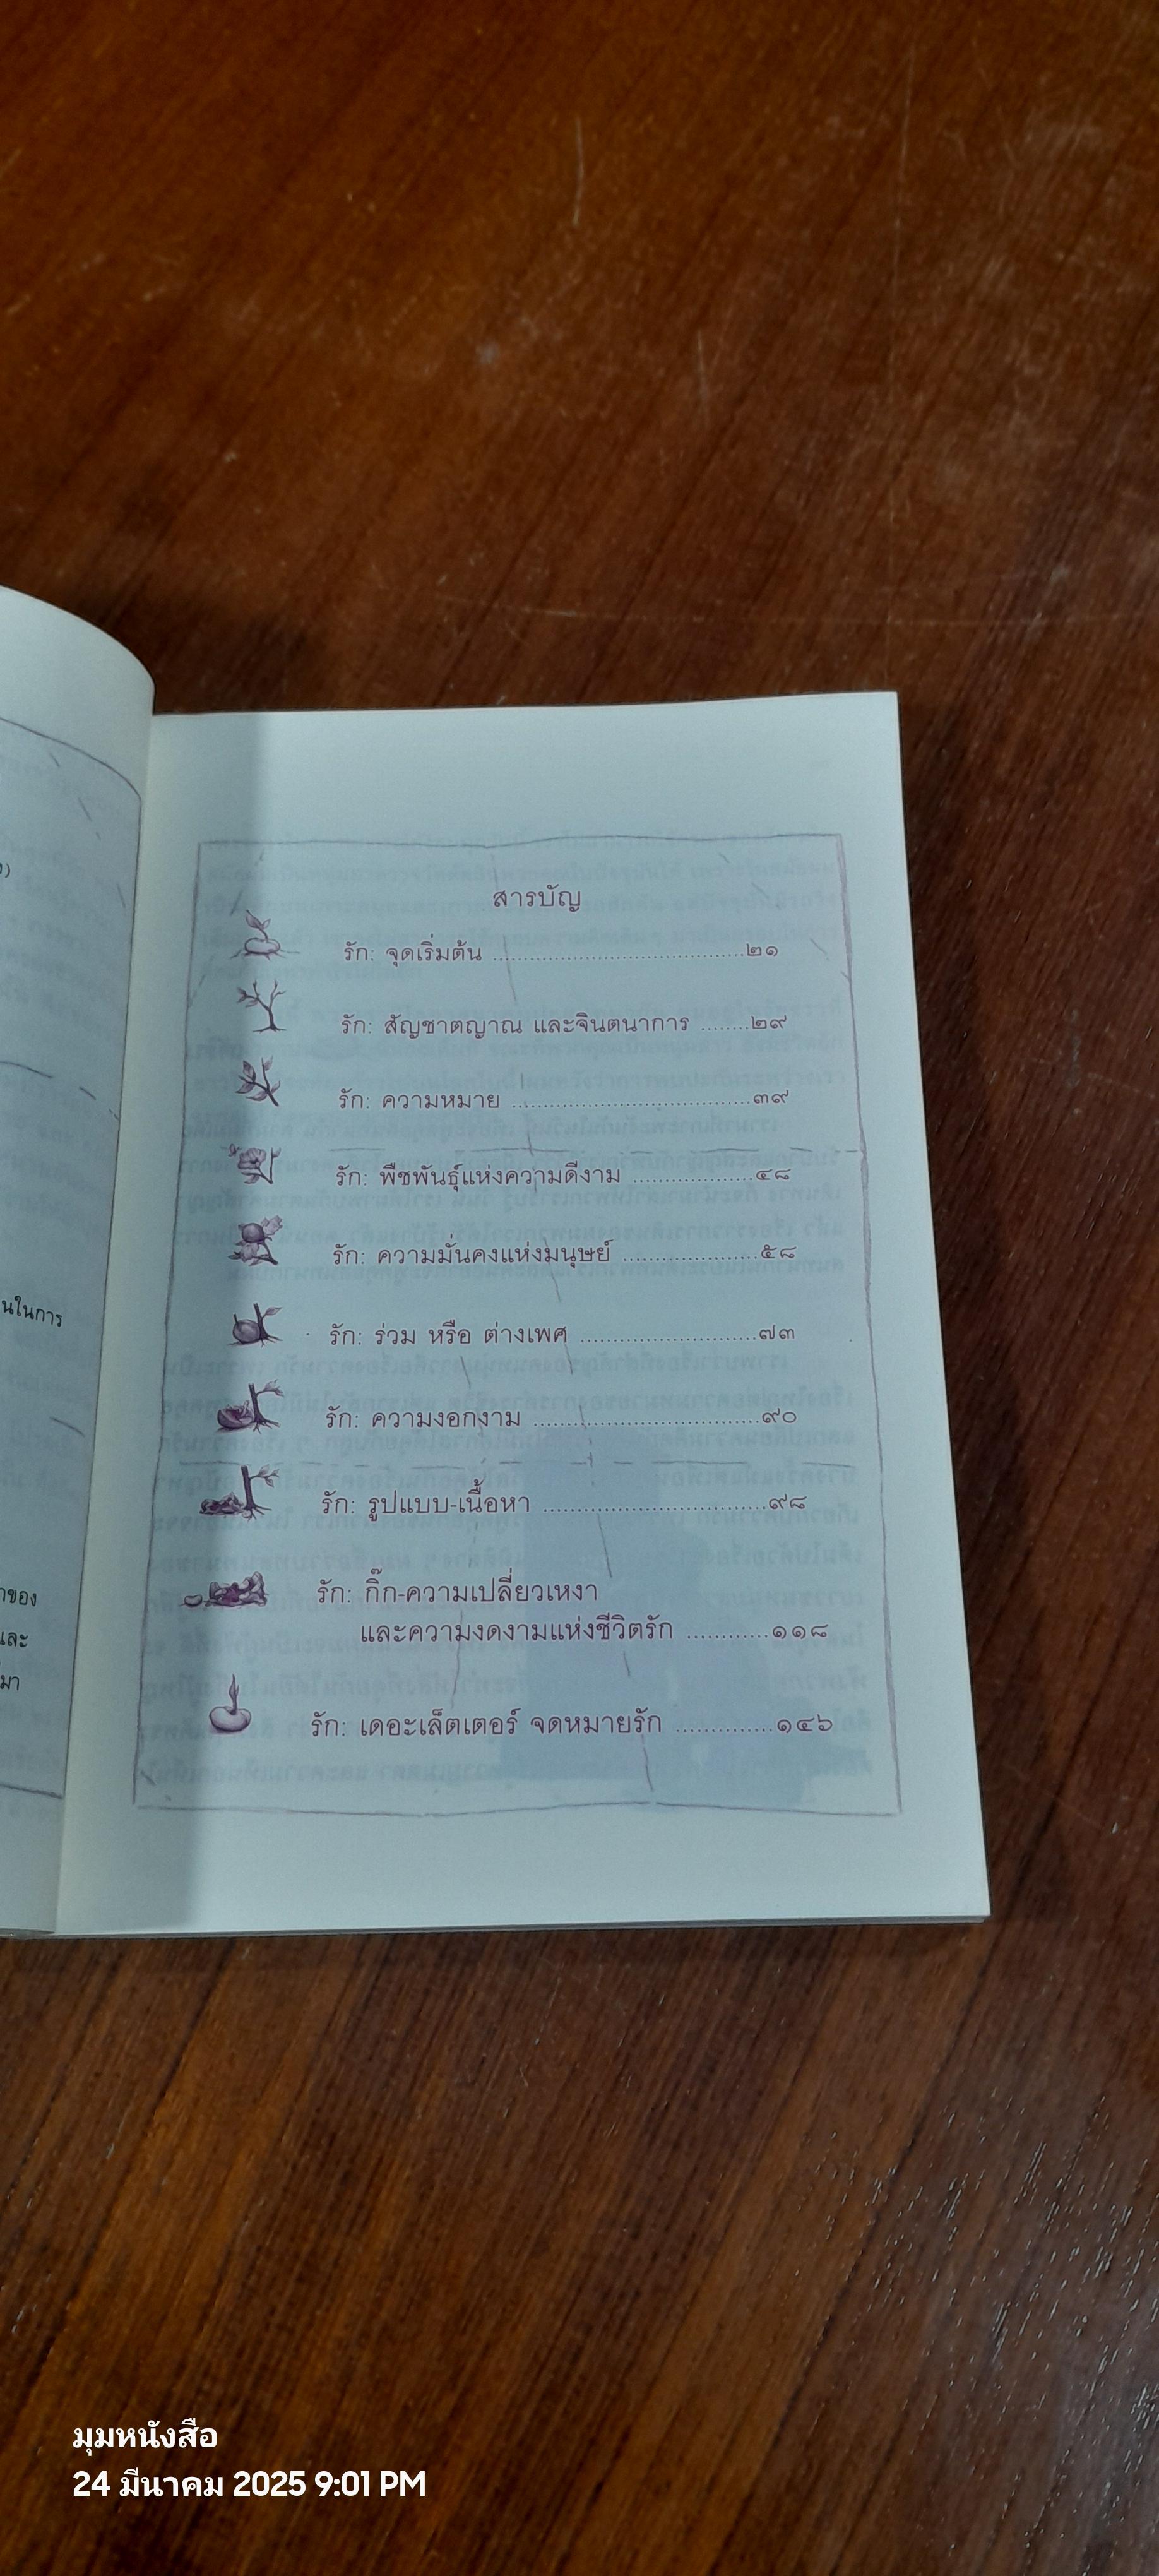 นในการ
าของ
และ
สารบัญ
รัก: จุดเริ่มต้น ..........................................๒๑
รัก: สัญชาตญาณ และจินตนาการ ........๒๙
รัก: ความหมาย .......................................๓๙
รัก: พืชพันธุ์แห่งความดีงาม ...................๔๘
รัก: ความมั่นคงแห่งมนุษย์ .....................๕๘
รัก: ร่วม หรือ ต่างเพศ ...........................๗๓
รัก: ความงอกงาม ...................................๙๐
รัก: รูปแบบ-เนื้อหา ..................................๙๘
รัก: กิ๊ก-ความเปลี่ยวเหงา
และความงดงามแห่งชีวิตรัก ............๑๑๘
รัก: เดอะเล็ตเตอร์ จดหมายรัก ..............๑๔๖
มุมหนังสือ
24 มีนาคม 2025 9:01 PM